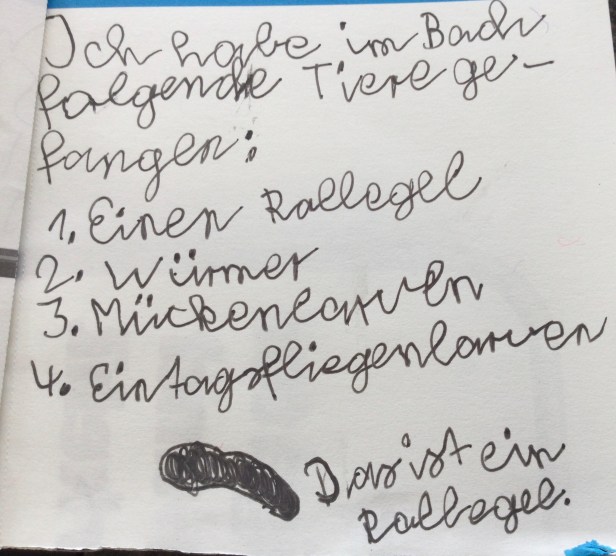 Ich habe im Bach
folgende Tiere ge-
fangen:
1. Einen Rollegel
2. Würmer
3. Mückenlarven
4. Eintagsfliegenlarven
Das ist ein
Rollegel.